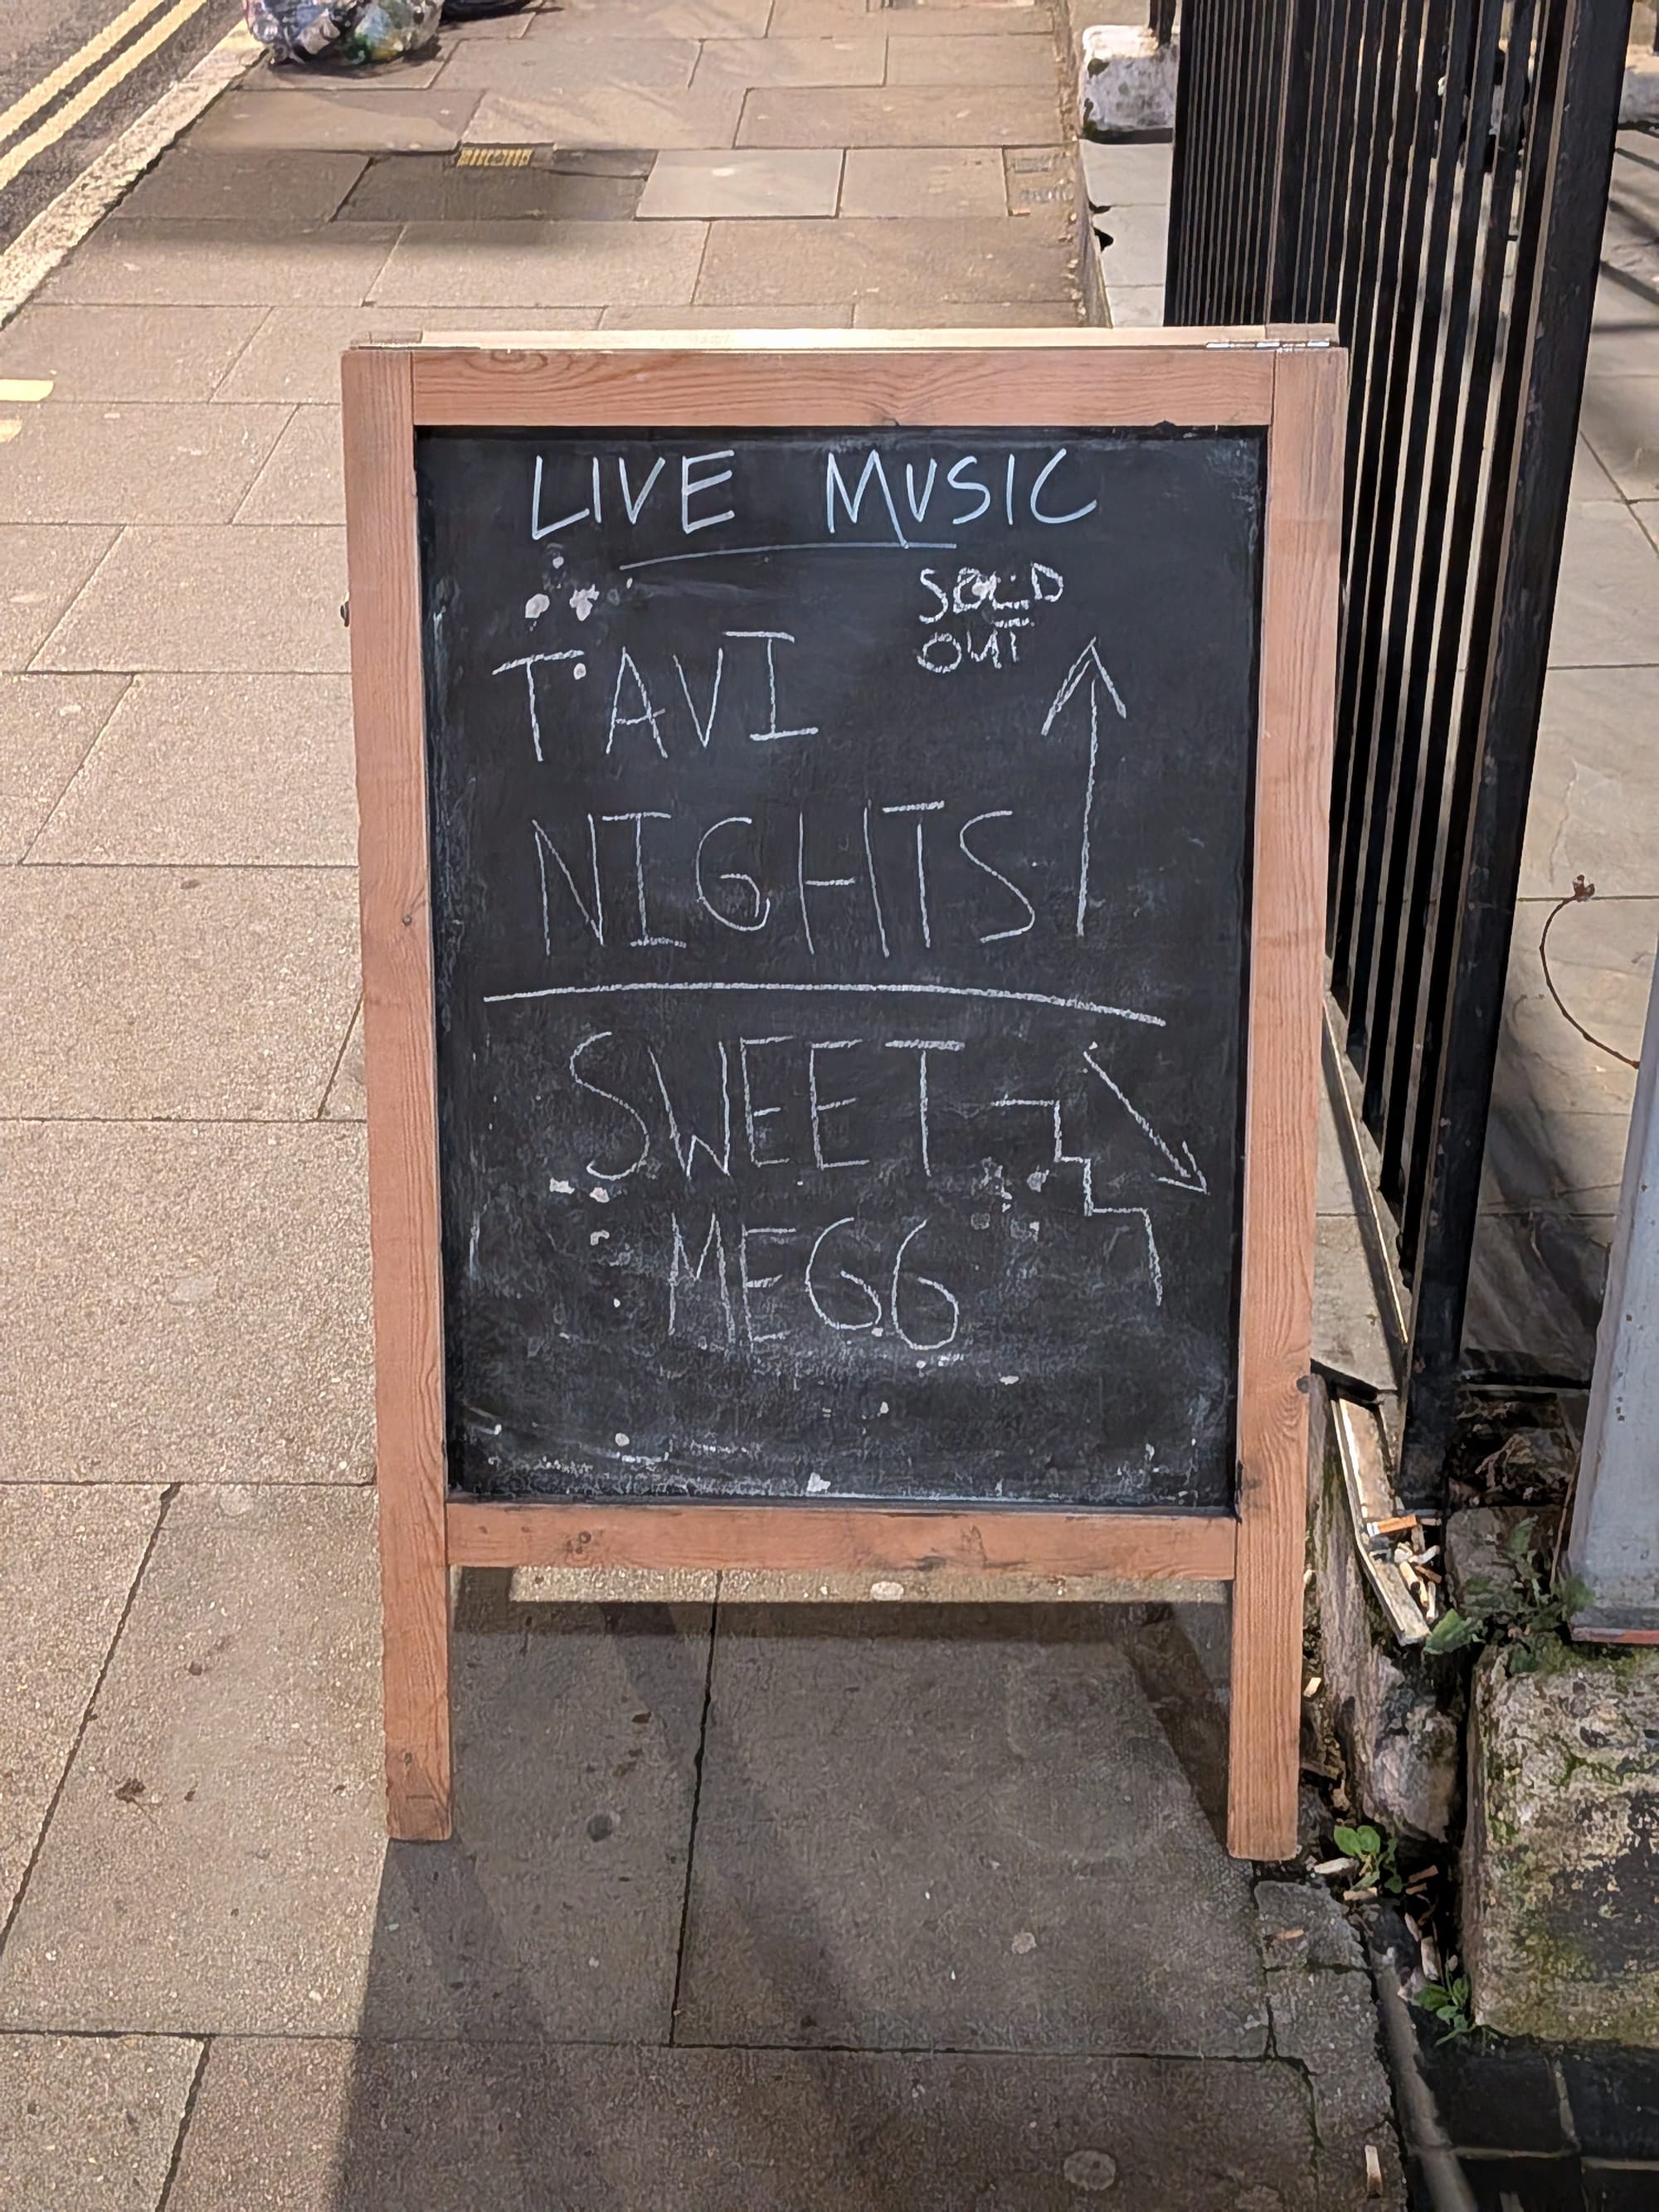 LIVE MUSIC
SOLD
OUT
TAVI
NIGHTS
SWEET
MEGG